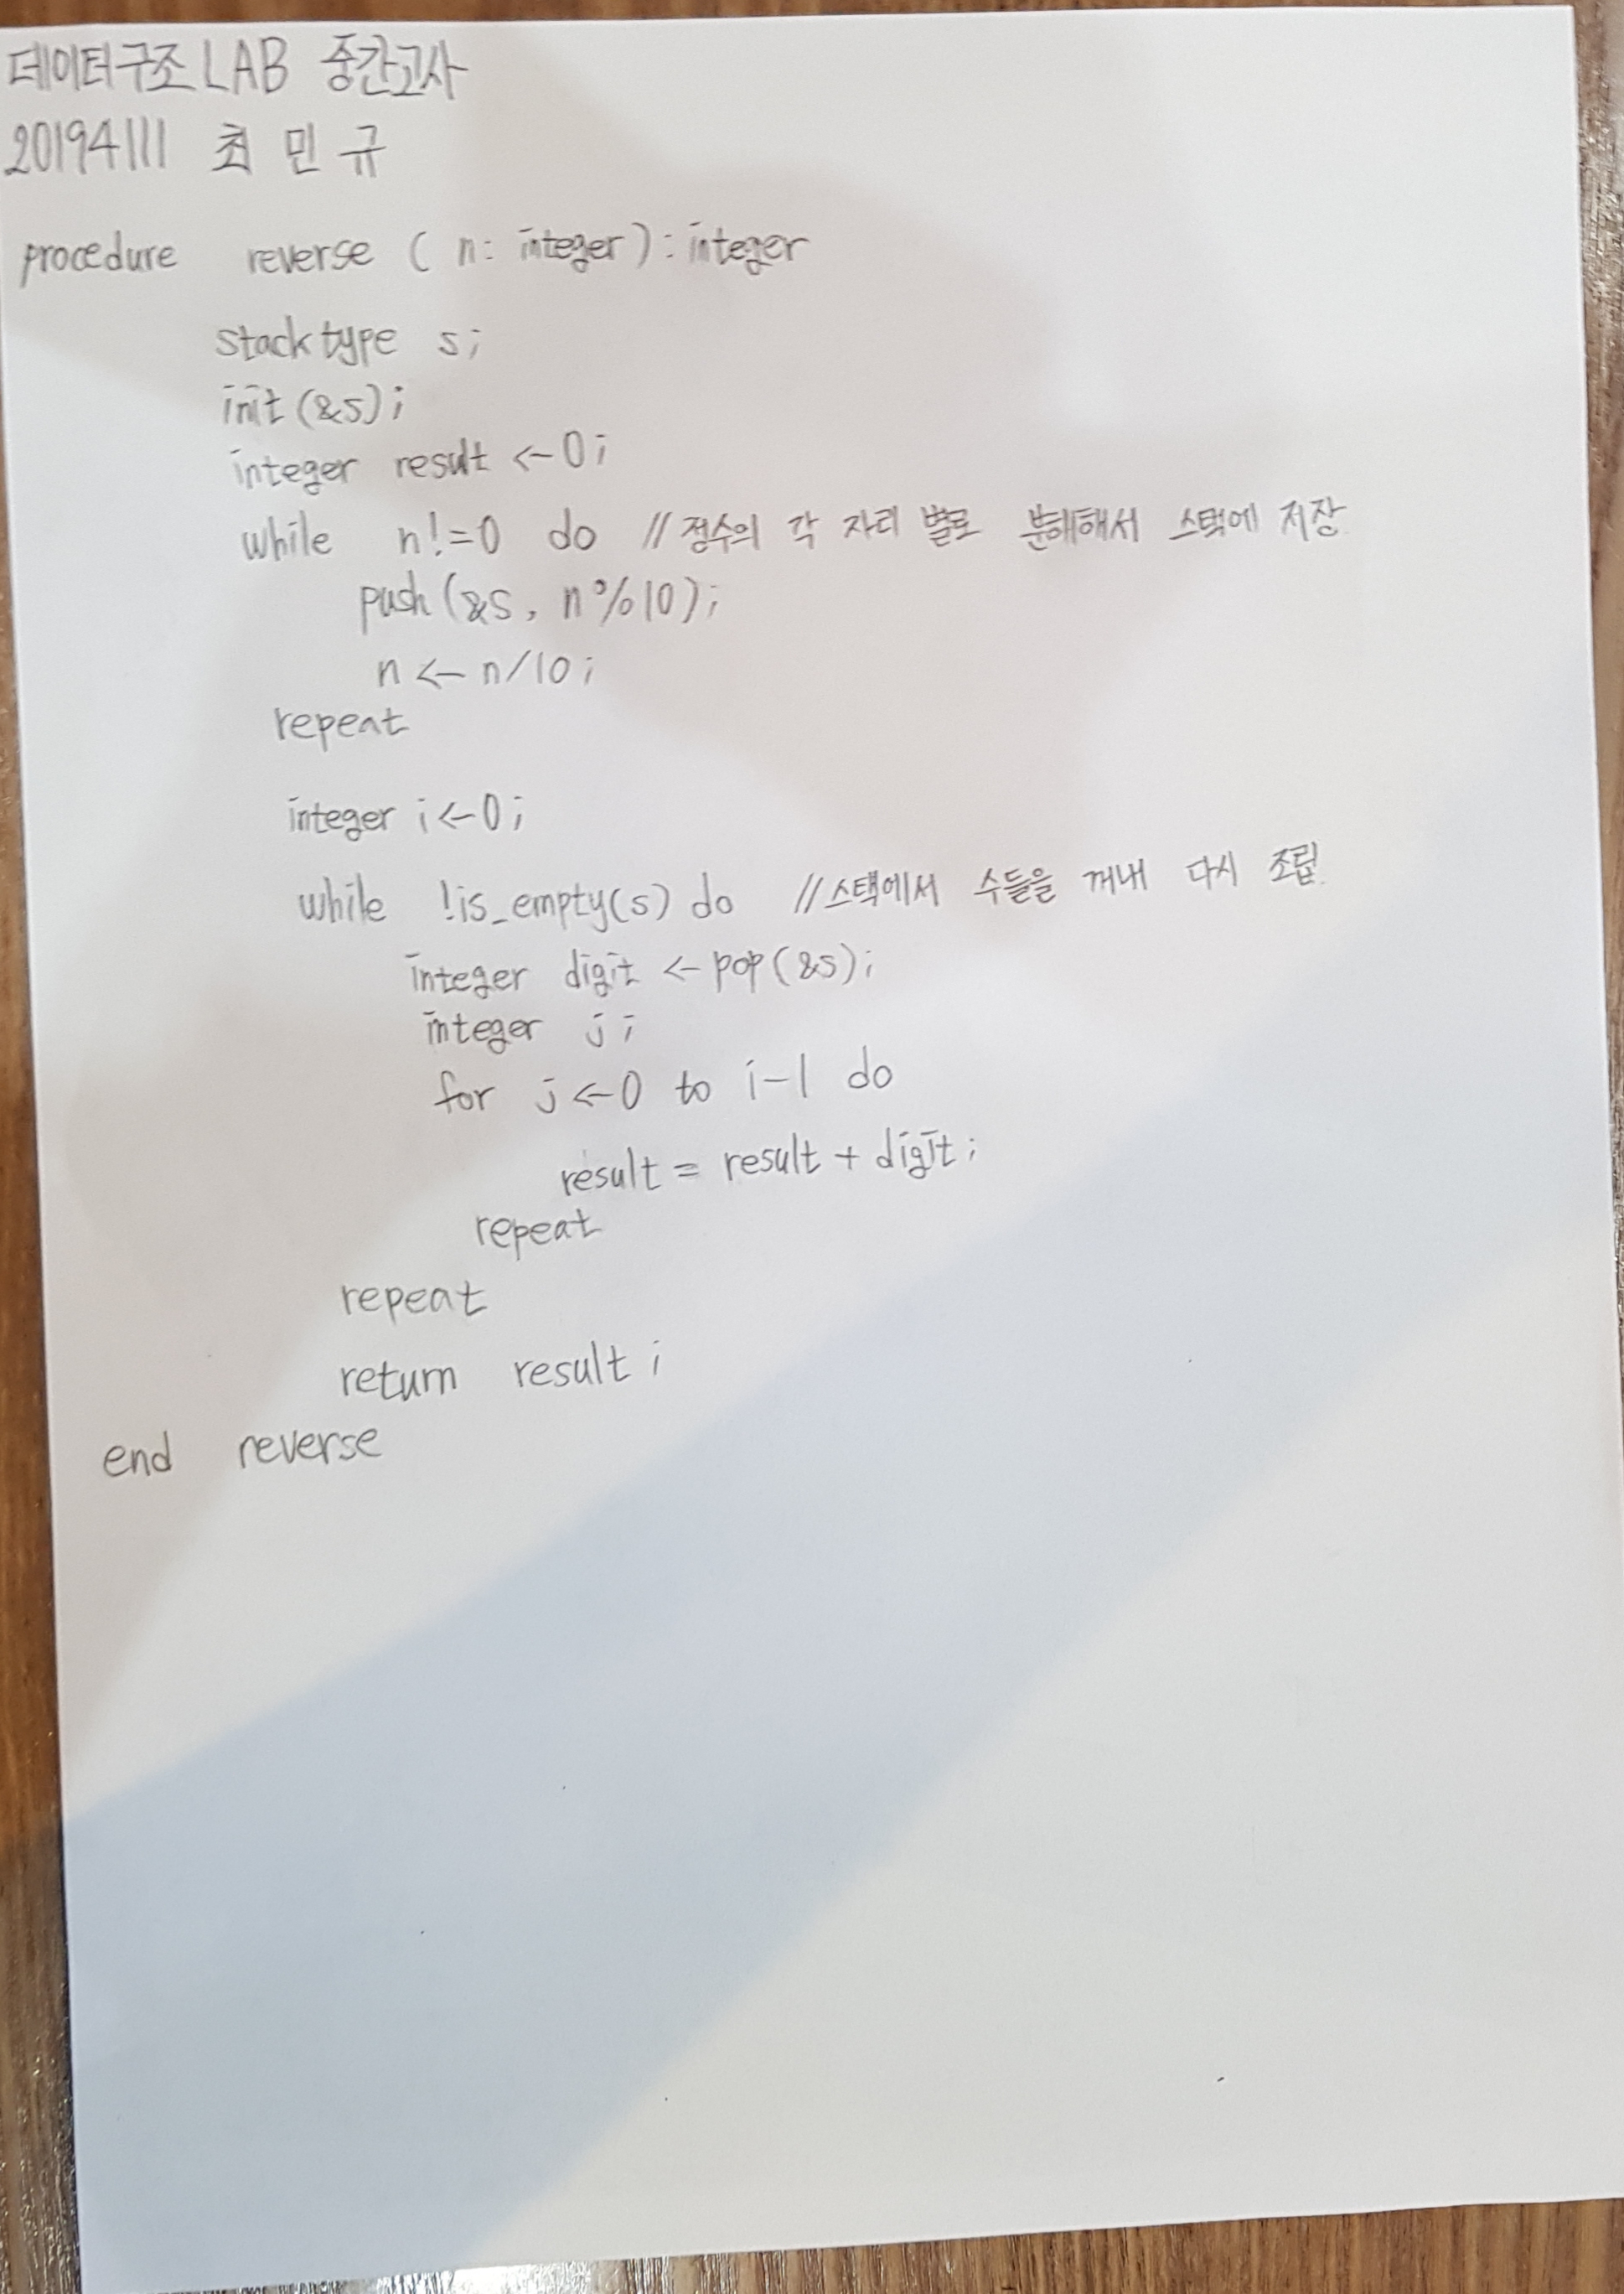 데이터구조 LAB 중간고사
20194111 최민규
procedure reverse ( n: integer) : integer
stacktype s;
init(&s);
integer result ← 0;
while n!=0 do // 정수의 각 자리 별로 분해해서 스택에 저장.
push(&s, n%10);
n ← n/10;
repeat
integer i ← 0;
while !is_empty(s) do // 스택에서 수들을 꺼내 다시 조립.
integer digit ← pop(&s);
integer j;
for j ← 0 to i-1 do
result = result + digit;
repeat
repeat
return result;
end reverse